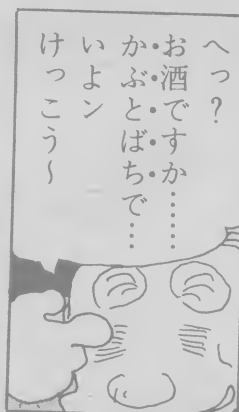 へっ?
お酒ですか……
かぶとばちで…
いよン
けっこう~